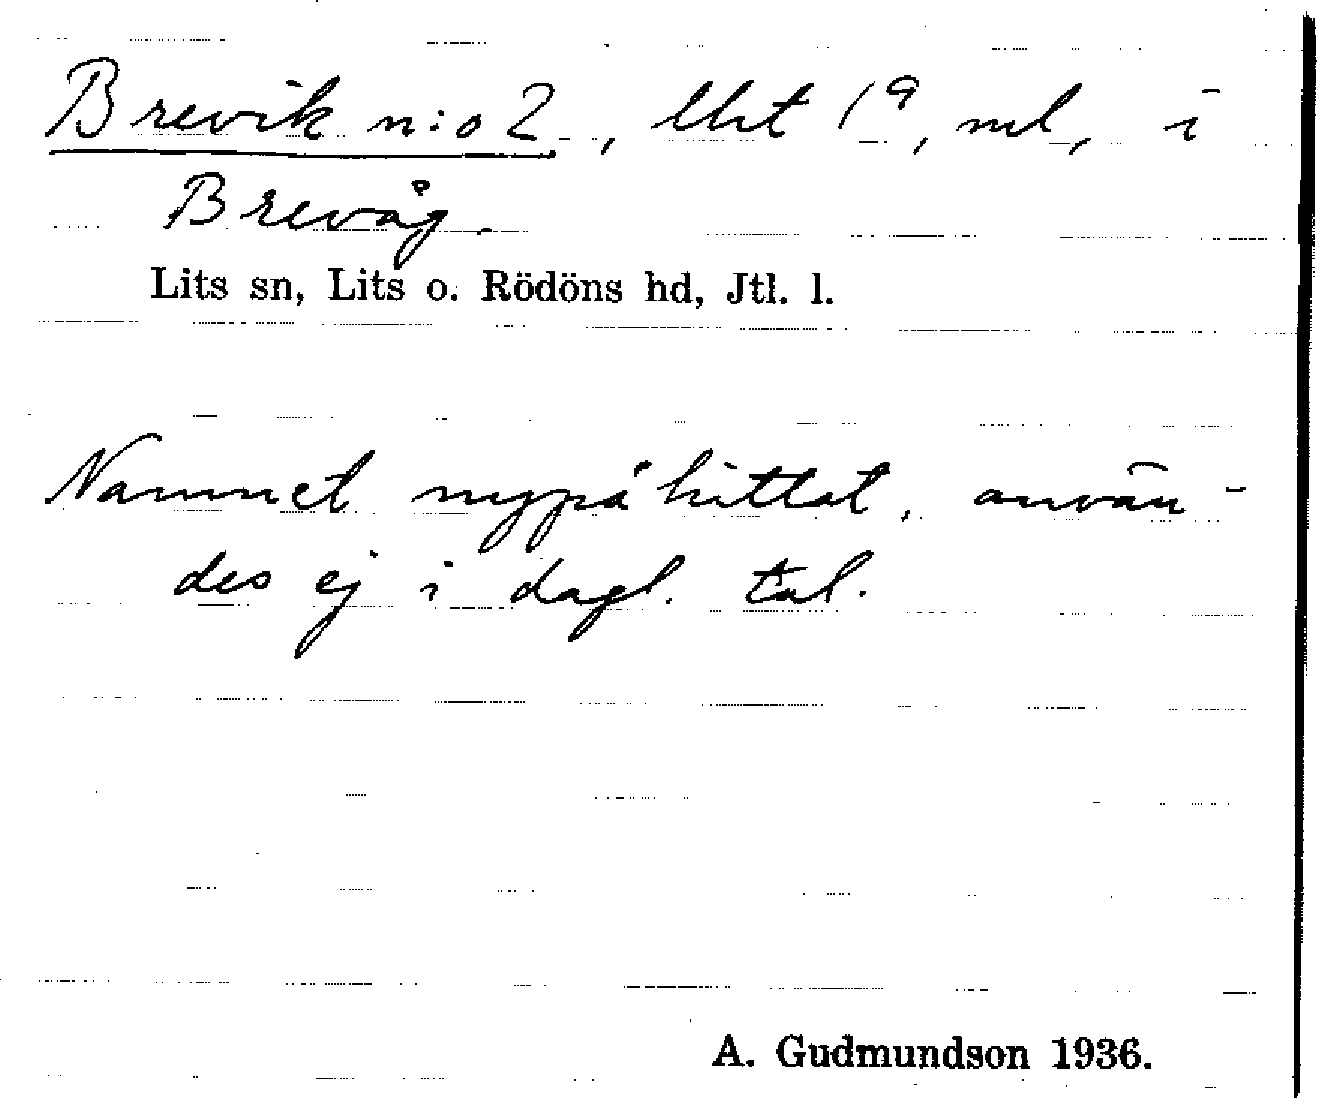 Brevik n:o 2, lht 1ª, ml, i
Brevåg.
Lits sn, Lits o. Rödöns hd, Jtl. l.
Namnet nypåhittat, använ-
des ej i dagl. tal.
A. Gudmundson 1936.